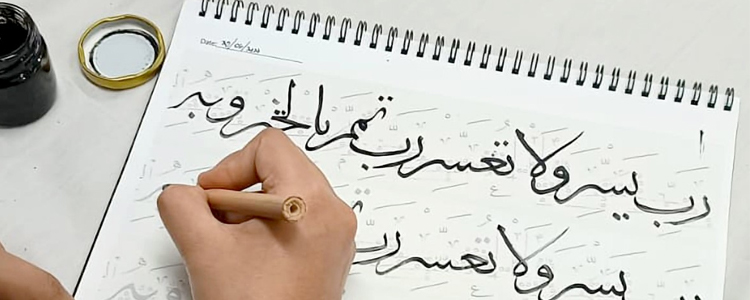 Date: 30/04/2021
رب يسر ولا تعسر رب تمم بالخير وبه
يسر ولا تعسر رب